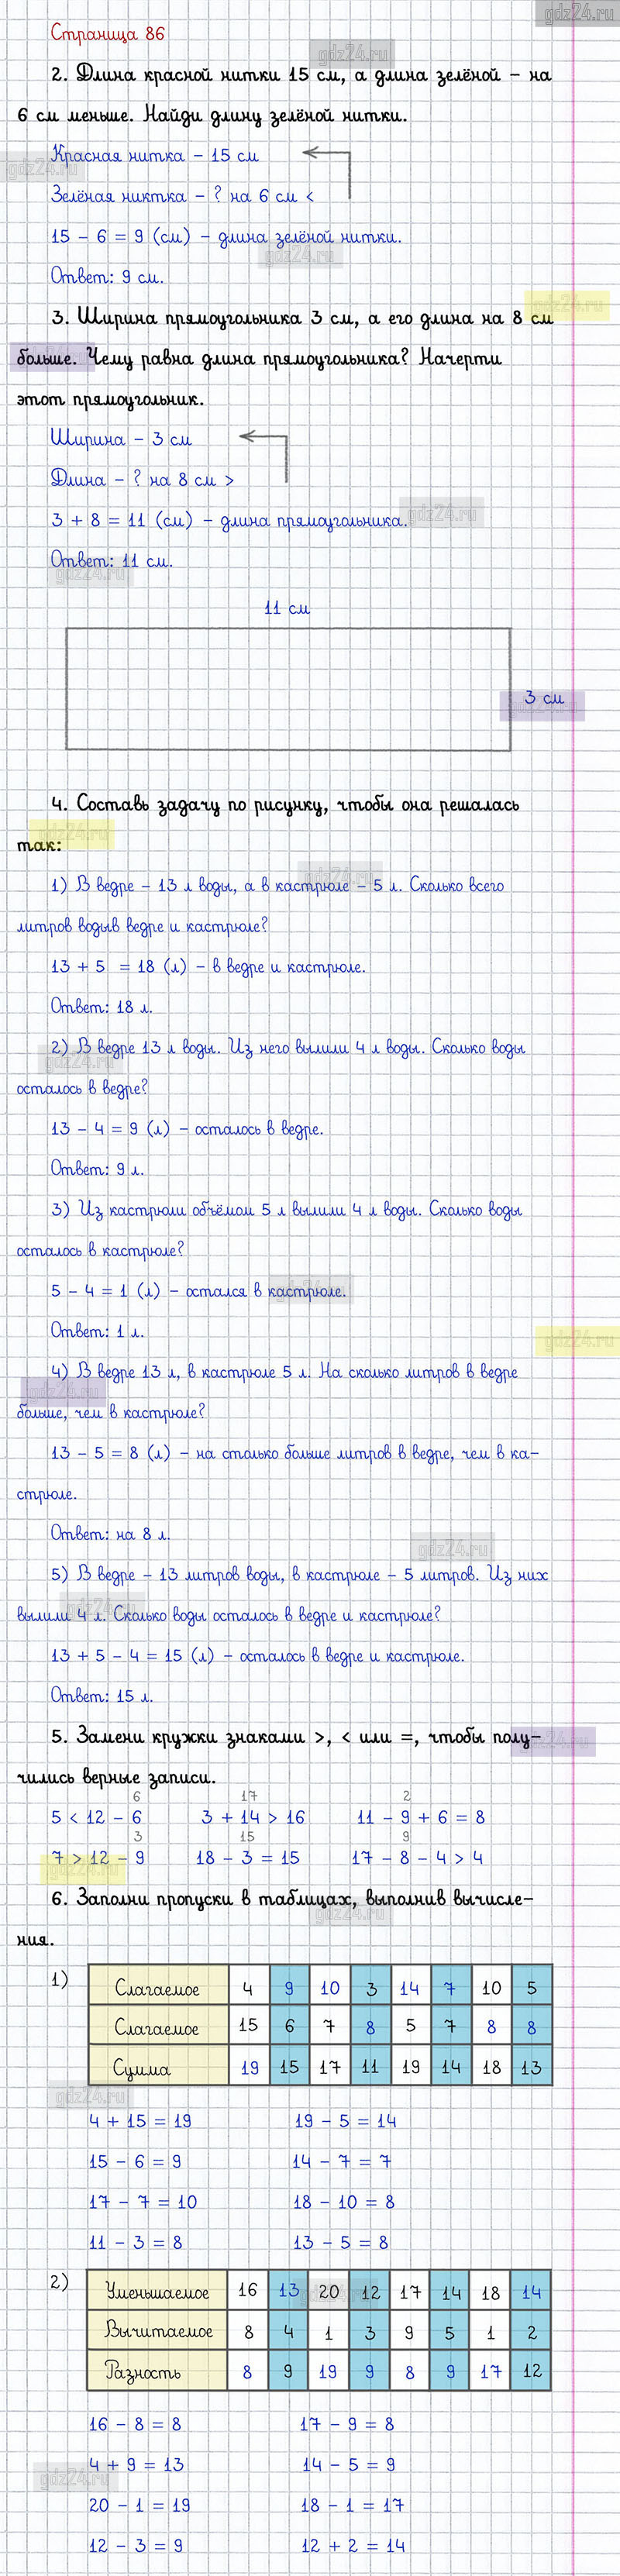 gdz24.ru
Страница 86
gdz24.ru
2. Длина красной нитки 15 см, а длина зелёной – на
6 см меньше. Найди длину зелёной нитки.
Красная нитка – 15 см
gdz24.ru
Зелёная никтка – ? на 6 см <
15 – 6 = 9 (см) – длина зелёной нитки.
gdz24.ru
Ответ: 9 см.
gdz24.ru
3. Ширина прямоугольника 3 см, а его длина на 8 см
больше. Чему равна длина прямоугольника? Начерти
этот прямоугольник.
Ширина – 3 см
Длина – ? на 8 см >
3 + 8 = 11 (см) – длина прямоугольника.
gdz24.ru
Ответ: 11 см.
gdz24.ru
11 см
3 см
gdz24.ru
4. Составь задачу по рисунку, чтобы она решалась
gdz24.ru
так:
gdz24.ru
1) В ведре – 13 л воды, а в кастрюле – 5 л. Сколько всего
литров водыв ведре и кастрюле?
13 + 5 = 18 (л) – в ведре и кастрюле.
Ответ: 18 л.
2) В ведре 13 л воды. Из него вылили 4 л воды. Сколько воды
gdz24.ru
осталось в ведре?
13 – 4 = 9 (л) – осталось в ведре.
Ответ: 9 л.
3) Из кастрюли объёмом 5 л вылили 4 л воды. Сколько воды
осталось в кастрюле?
5 – 4 = 1 (л) – остался в кастрюле.
gdz24.ru
Ответ: 1 л.
gdz24.ru
4) В ведре 13 л, в кастрюле 5 л. На сколько литров в ведре
gdz24.ru
больше, чем в кастрюле?
13 – 5 = 8 (л) – на столько больше литров в ведре, чем в ка–
стрюле.
Ответ: на 8 л.
gdz24.ru
5) В ведре – 13 литров воды, в кастрюле – 5 литров. Из них
gdz24.ru
вылили 4 л. Сколько воды осталось в ведре и кастрюле?
13 + 5 – 4 = 15 (л) – осталось в ведре и кастрюле.
Ответ: 15 л.
5. Замени кружки знаками >, < или =, чтобы полу–
gdz24.ru
чились верные записи.
6 17 2
5 < 12 – 6 3 + 14 > 16 11 – 9 + 6 = 8
3 15 9
7 > 12 – 9 18 – 3 = 15 17 – 8 – 4 > 4
gdz24.ru
6. Заполни пропуски в таблицах, выполнив вычисле–
gdz24.ru
ния.
1) Слагаемое 4 9 10 3 14 7 10 5
Слагаемое 15 6 7 8 5 7 8 8
Сумма 19 15 17 11 19 14 18 13
gdz24.ru
4 + 15 = 19 19 – 5 = 14
15 – 6 = 9 14 – 7 = 7
17 – 7 = 10 18 – 10 = 8
11 – 3 = 8 13 – 5 = 8
2) Уменьшаемое 16 13 20 12 17 14 18 14
gdz24.ru
Вычитаемое 8 4 1 3 9 5 1 2
Разность 8 9 19 9 8 9 17 12
16 – 8 = 8 17 – 9 = 8
4 + 9 = 13 14 – 5 = 9
gdz24.ru
20 – 1 = 19 18 – 1 = 17
12 – 3 = 9 12 + 2 = 14